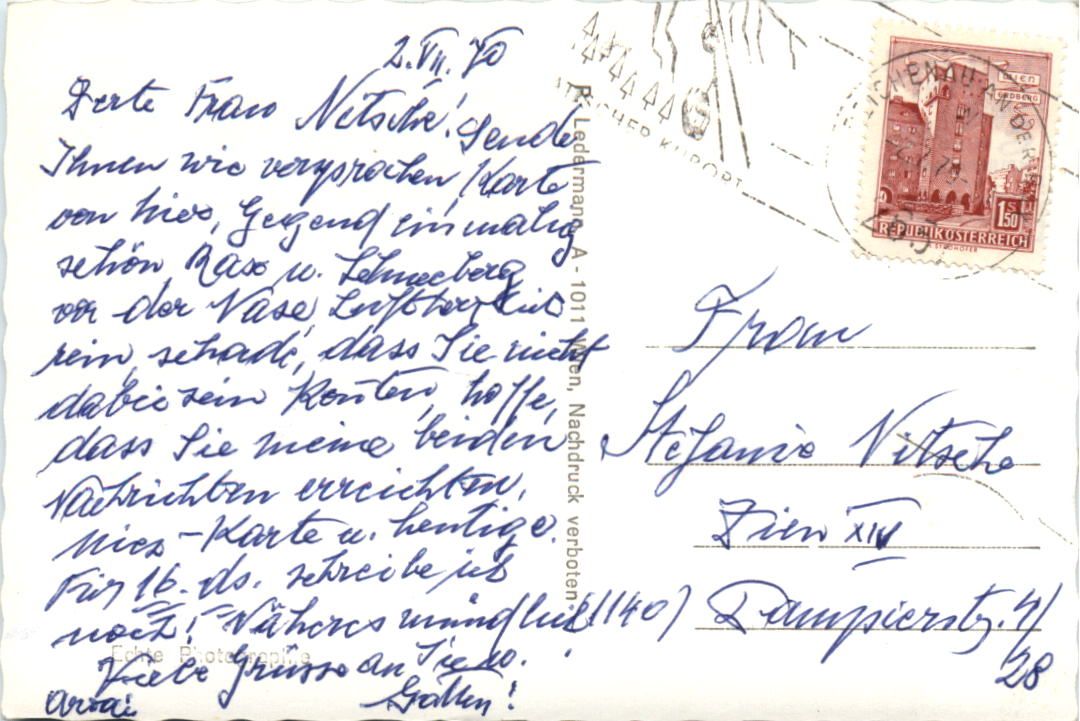 2.VII.70
Werte Frau Nitsche! Sende
Ihnen wie versprochen, Karte
von hier, Gegend einmalig
schön Rax u. Schneeberg
vor der Nase, Luft herrlich
rein, schade, dass Sie nicht
dabei sein konten, hoffe,
dass Sie meine beiden
Nachrichten erreichten,
hier - Karte u. heutige.
Für 16. ds. schreibe ich
noch! Näheres mündlich!
Viele Grüsse an Sie u.
Gatten!
Echte Photographie
P. Ledermann, A - 1011 Wien, Nachdruck verboten
REICHENAU AN DER
KURORT
WIEN
ERDBERG
S 1.50
REPUBLIK ÖSTERREICH
Frau
Stefanie Nitsche
Wien XIV
(1140) Dampierrestr. 4/
28